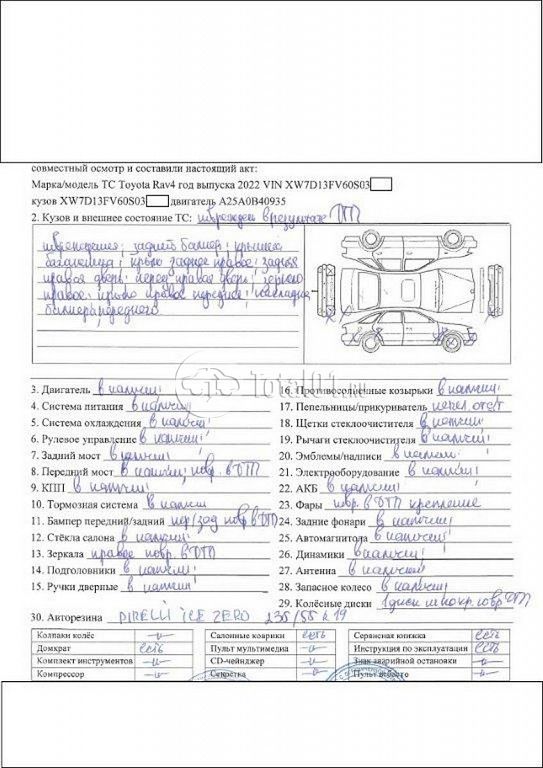 совместный осмотр и составили настоящий акт:
Марка/модель ТС Toyota Rav4 год выпуска 2022 VIN XW7D13FV60S03
кузов XW7D13FV60S03 двигатель A25A0B40935
2. Кузов и внешнее состояние ТС: поврежден в результате ДТП
повреждения: задний бампер; крышка
багажника; крыло заднее правое; задняя
правая дверь; перед правая дверь; зеркало
правое; крыло правое переднее; накладка
бампера переднего
Total01.ru
3. Двигатель в наличии
4. Система питания в наличии
5. Система охлаждения в наличии
6. Рулевое управление в наличии
7. Задний мост в наличии
8. Передний мост в наличии, повр. в ДТП
9. КПП в наличии
10. Тормозная система в наличии
11. Бампер передний/задний пер/зад повр в ДТП
12. Стёкла салона в наличии
13. Зеркала правое повр. в ДТП
14. Подголовники в наличии
15. Ручки дверные в наличии
16. Противосолнечные козырьки в наличии
17. Пепельницы/прикуриватель пепел. отс/т
18. Щетки стеклоочистителя в наличии
19. Рычаги стеклоочистителя в наличии
20. Эмблемы/надписи в наличии
21. Электрооборудование в наличии
22. АКБ в наличии
23. Фары повр. в ДТП крепление
24. Задние фонари в наличии
25. Автомагнитола в наличии
26. Динамики в наличии
27. Антенна в наличии
28. Запасное колесо в наличии
29. Колёсные диски 1 диск повр ДТП
30. Авторезина PIRELLI ICE ZERO 235/55 R19
Колпаки колёс –"–
Домкрат есть
Комплект инструментов –"–
Компрессор –"–
Салонные коврики есть
Пульт мультимедиа –"–
CD-чейнджер –"–
Секретка –"–
Сервисная книжка есть
Инструкция по эксплуатации есть
Знак аварийной остановки –"–
Пульт –"–